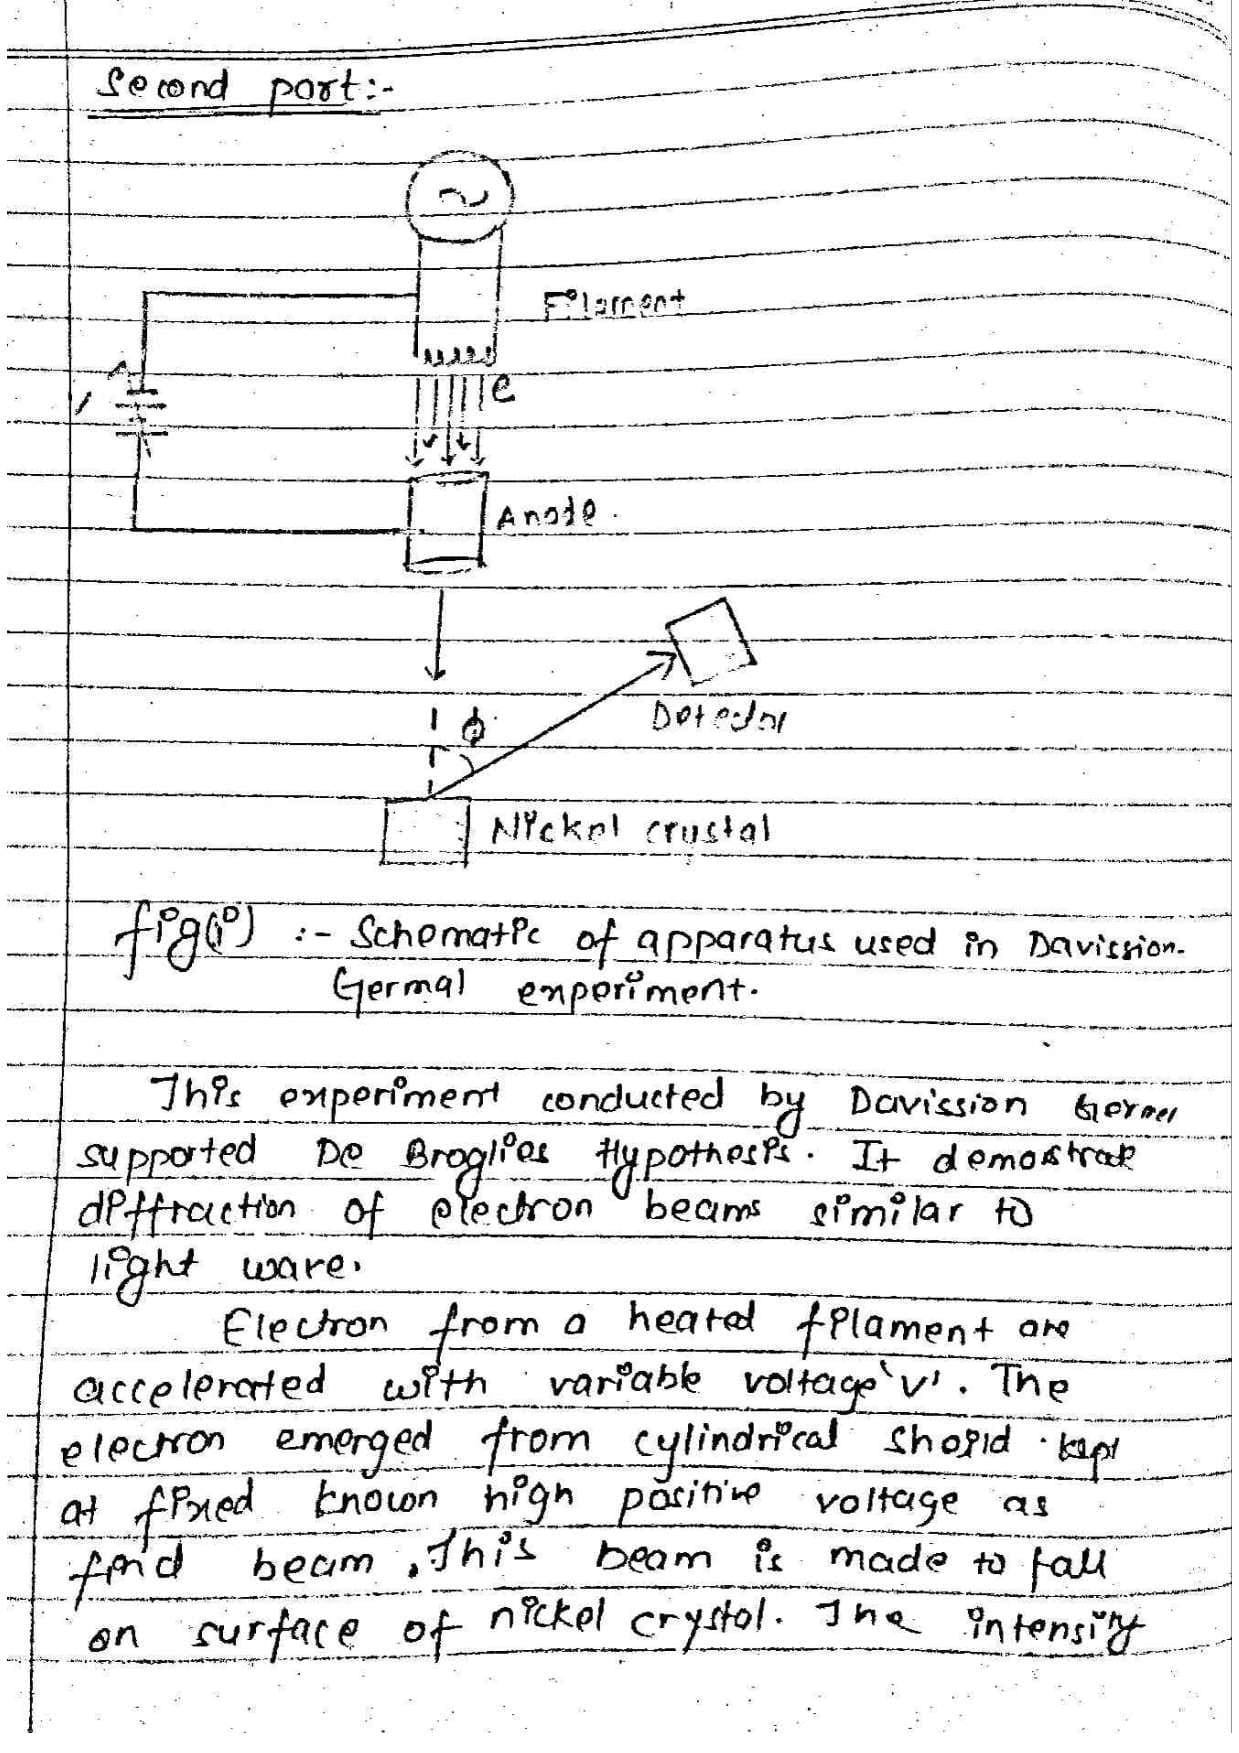 Second part:-
Filament
e
Anode.
ϕ
Detector
Nickel crystal
fig(i) :- Schematic of apparatus used in Davission-
Germal experiment.
This experiment conducted by Davission Germer
supported De Broglies Hypothesis. It demostrate
diffraction of electron beams similar to
light ware.
Electron from a heated filament are
accelerated with variable voltage 'v'. The
electron emerged from cylindrical shoild kept
at fixed known high positive voltage as
beam. This beam is made to fall
on surface of nickel crystal. The intensity